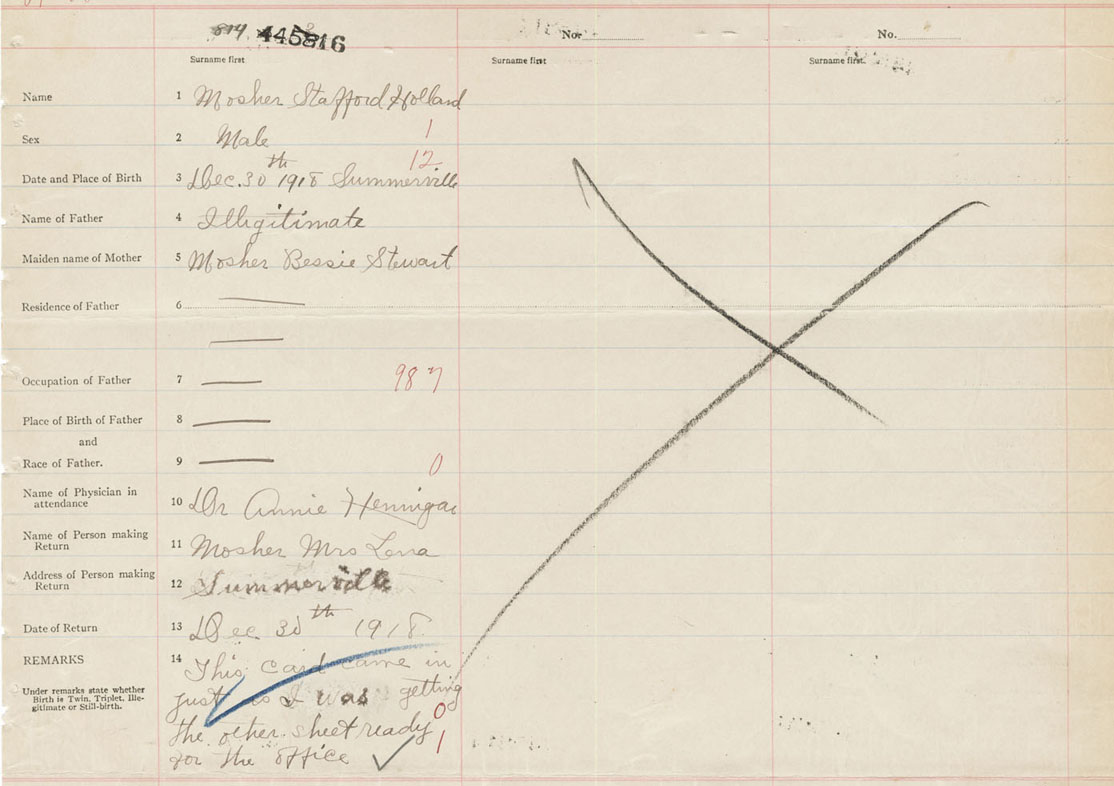 814 445816
No.
No.
Surname first
Surname first
Surname first.
Name 1 Mosher Stafford Holland
1
Sex 2 Male
12
Date and Place of Birth 3 Dec. 30th 1918 Summerville
Name of Father 4 Illigitimate
Maiden name of Mother 5 Mosher Bessie Stewart
Residence of Father 6
Occupation of Father 7 987
Place of Birth of Father 8
and
Race of Father. 9 0
Name of Physician in
attendance 10 Dr Annie Hennigar
Name of Person making
Return 11 Mosher Mrs Lena
Address of Person making
Return 12 Summerville
Date of Return 13 Dec 30th 1918
REMARKS 14 This card came in
Under remarks state whether
Birth is Twin, Triplet, Ille-
gitimate or Still-birth.
just as I was getting
0
the other sheet ready
1
for the office